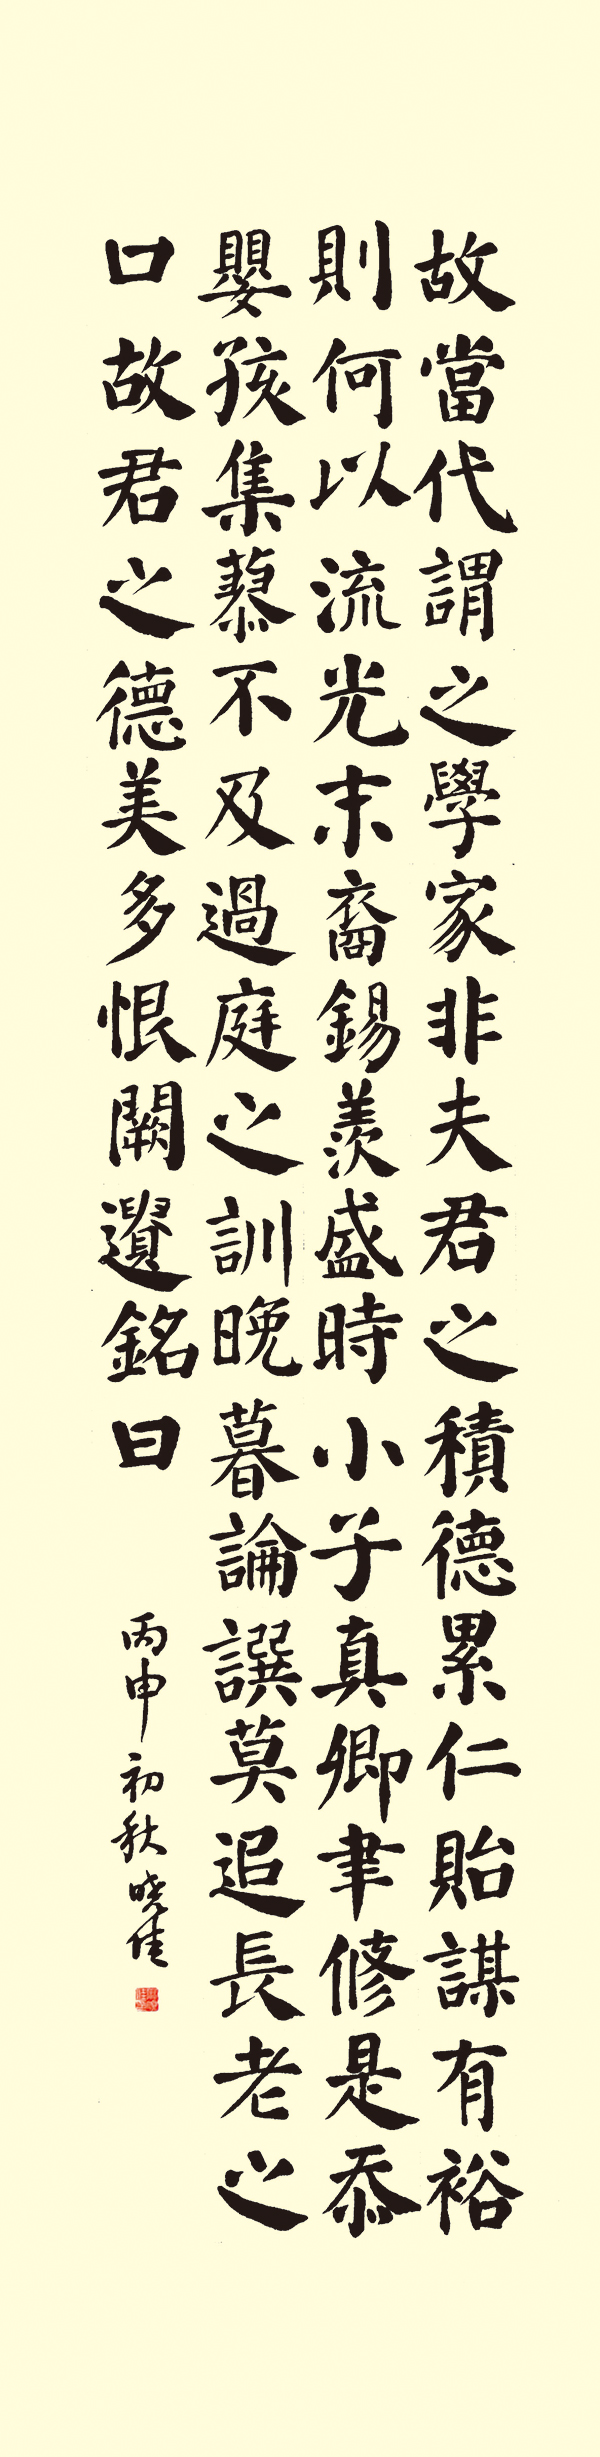 故當代謂之學家非夫君之積德累仁貽謀有裕
則何以流光末裔錫羡盛時小子真卿聿修是忝
嬰孩集蓼不及過庭之訓晚暮論譔莫追長老之
口故君之德美多恨闕遺銘曰
丙申初秋曉佳